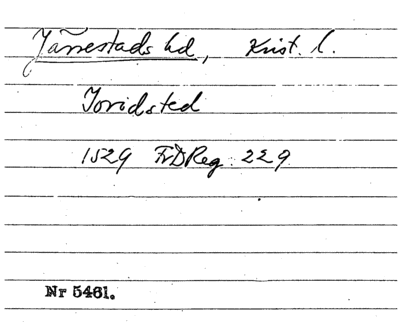 Järrestads hd, Krist. l.
Joridsted
1529 FrDReg. 229
Nr 5461.